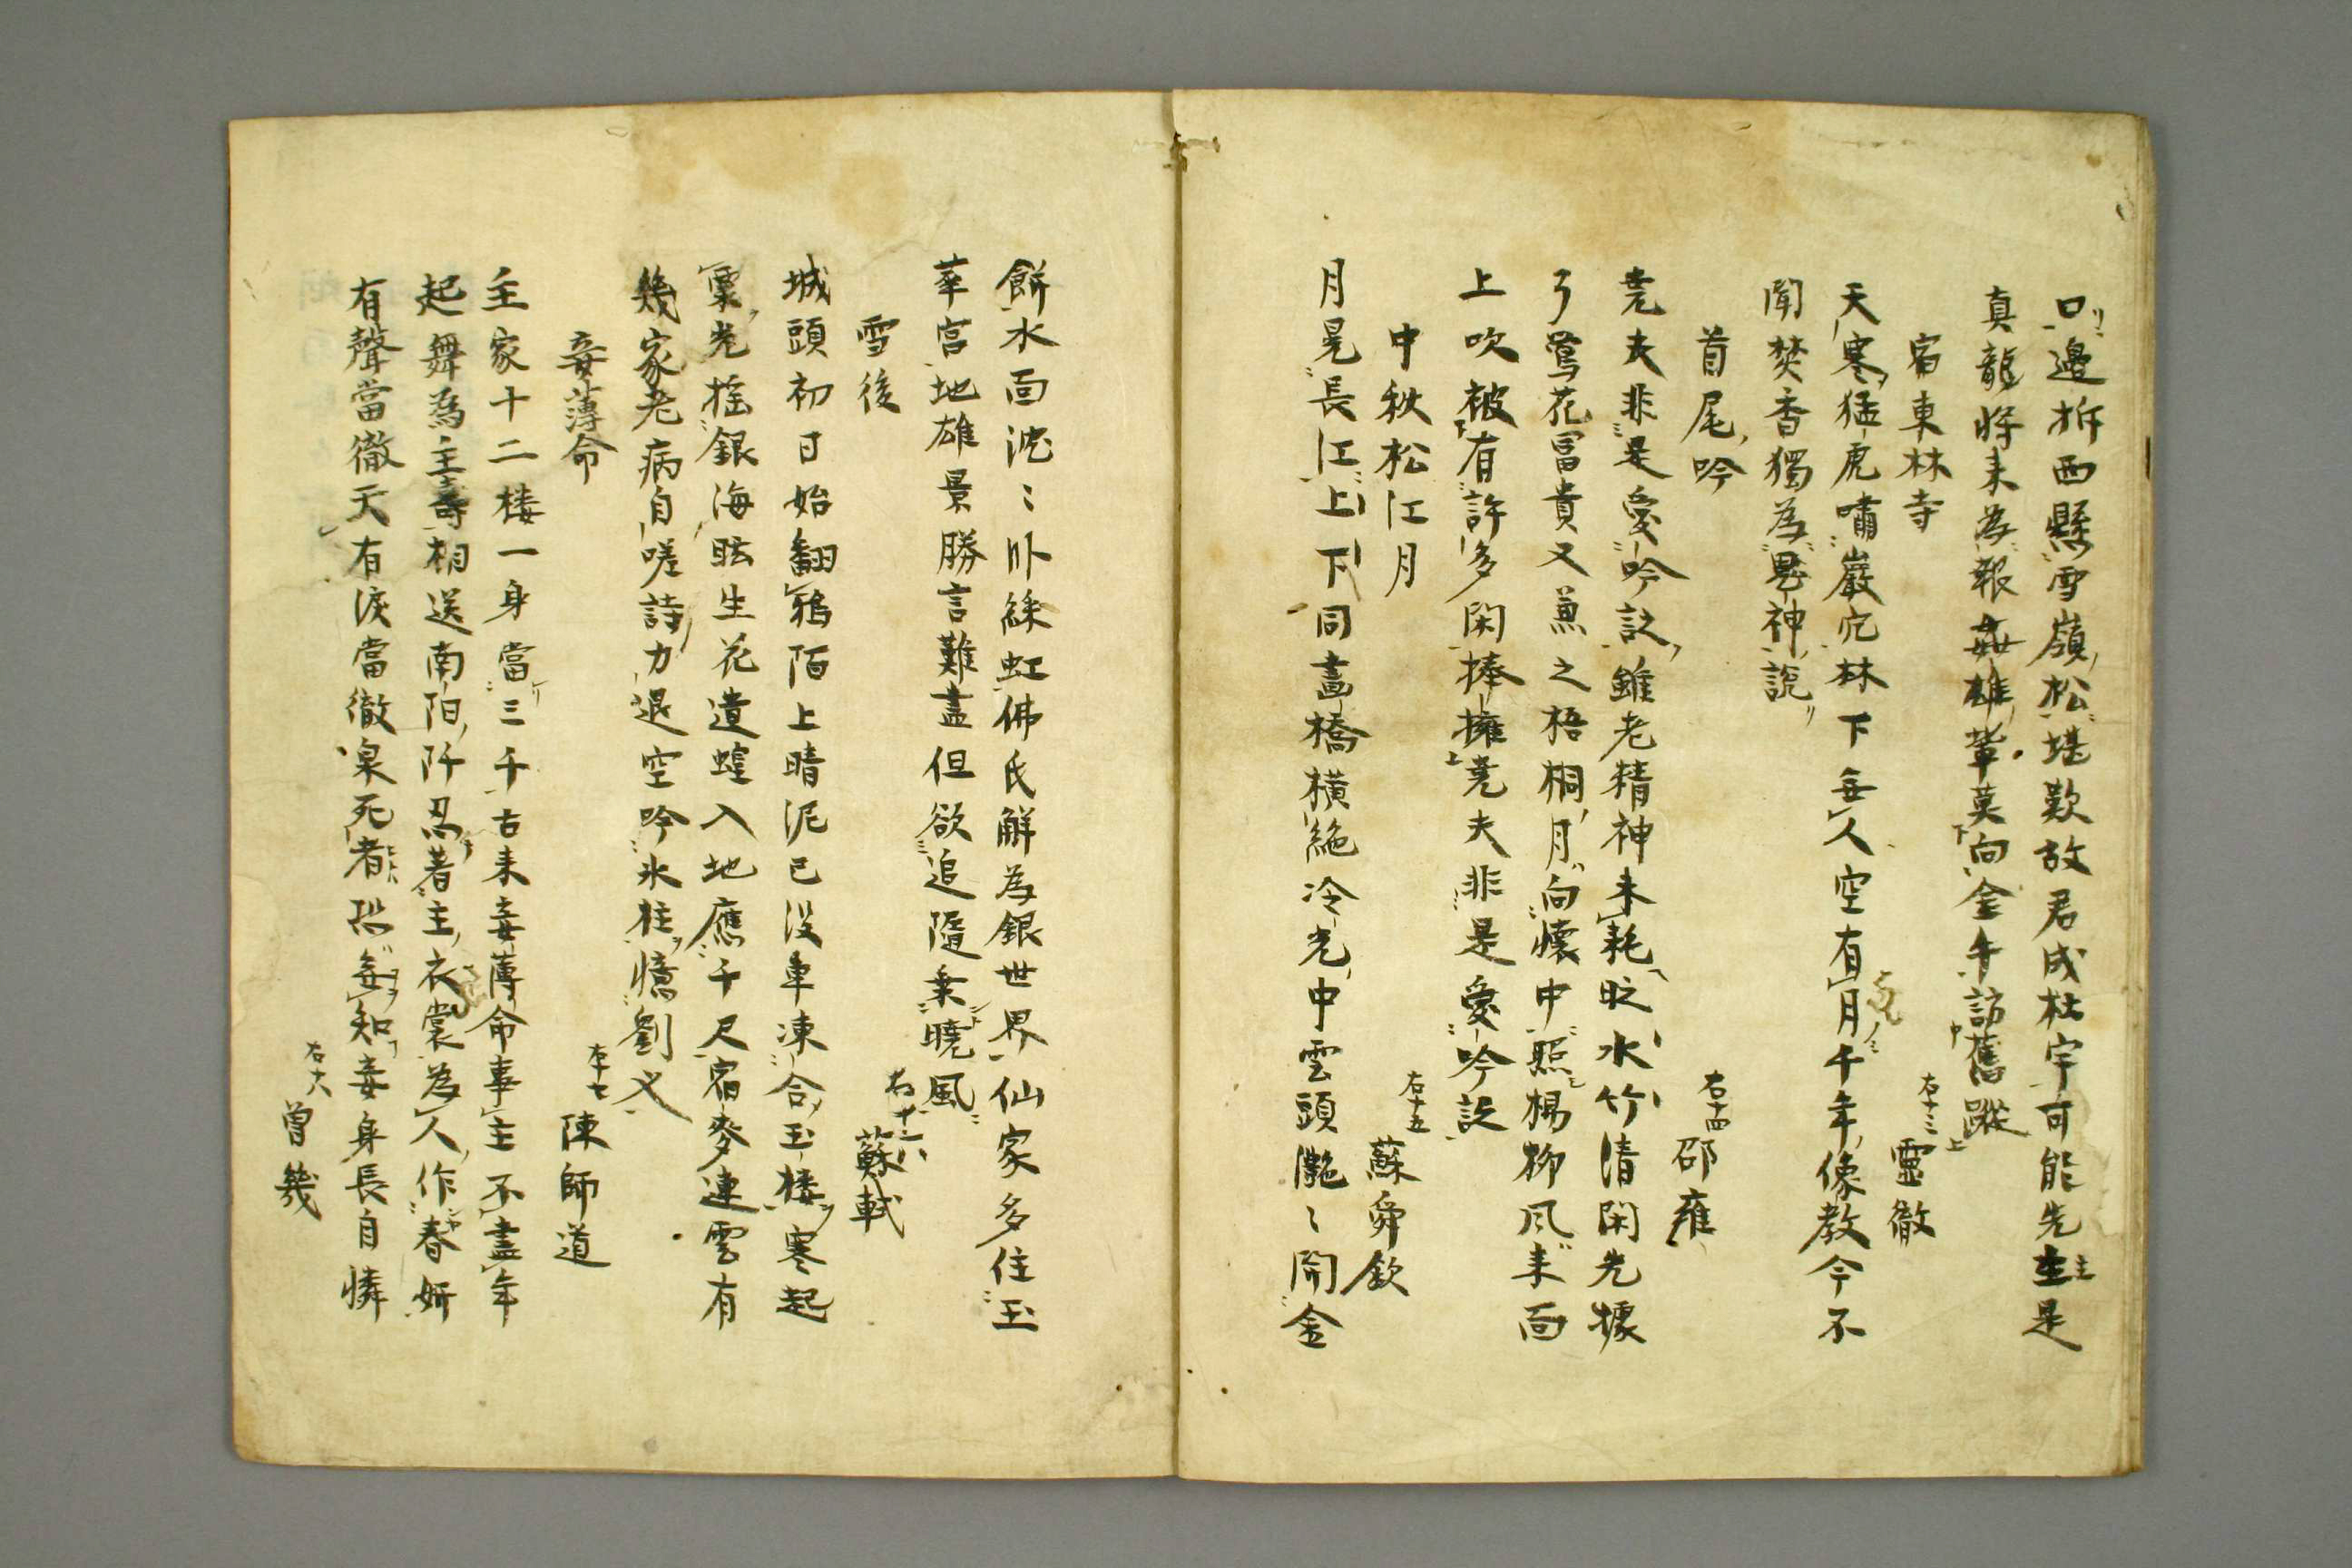 口邊拆西懸雪嶺松堪歎故君成杜宇可能先主是
真龍將来為報姦雄輩莫向金牛訪舊蹤
宿東林寺
右十三 靈徹
天寒猛虎嘯巖穴林下無人空有月千年像教今不
聞焚香獨為鬼神説
首尾吟
右十四 邵雍
尭夫非是愛吟詩雖老精神未耗時水竹清閑先據
了鶯花冨貴又兼之梧桐月向懐中照楊柳风来面
上吹被有許多閑捧擁尭夫非是愛吟詩
中秋松江月
右十五 蘇舜欽
月晃長江上下同畫橋横絶冷光中雲頭灔〻開金
餅水面沈〻卧綵虹佛氏解為銀世界仙家多住玉
華宫地雄景勝言難盡但欲追隨乗曉風
雪後
右十六 蘇軾
城頭初日始翻鴉陌上晴泥已没車凍合玉楼寒起
粟光揺銀海眩生花遺蝗入地應千尺宿麥連雲有
幾家老病自嗟詩力退空吟氷柱憶劉乂
妾薄命
右十七 陳師道
主家十二楼一身當三千古来妾薄命事主不盡年
起舞為主壽相送南陽阡忍著主衣裳為人作春妍
有聲當徹天有淚當徹泉死者恐無知妾身長自憐
右十八 曽幾